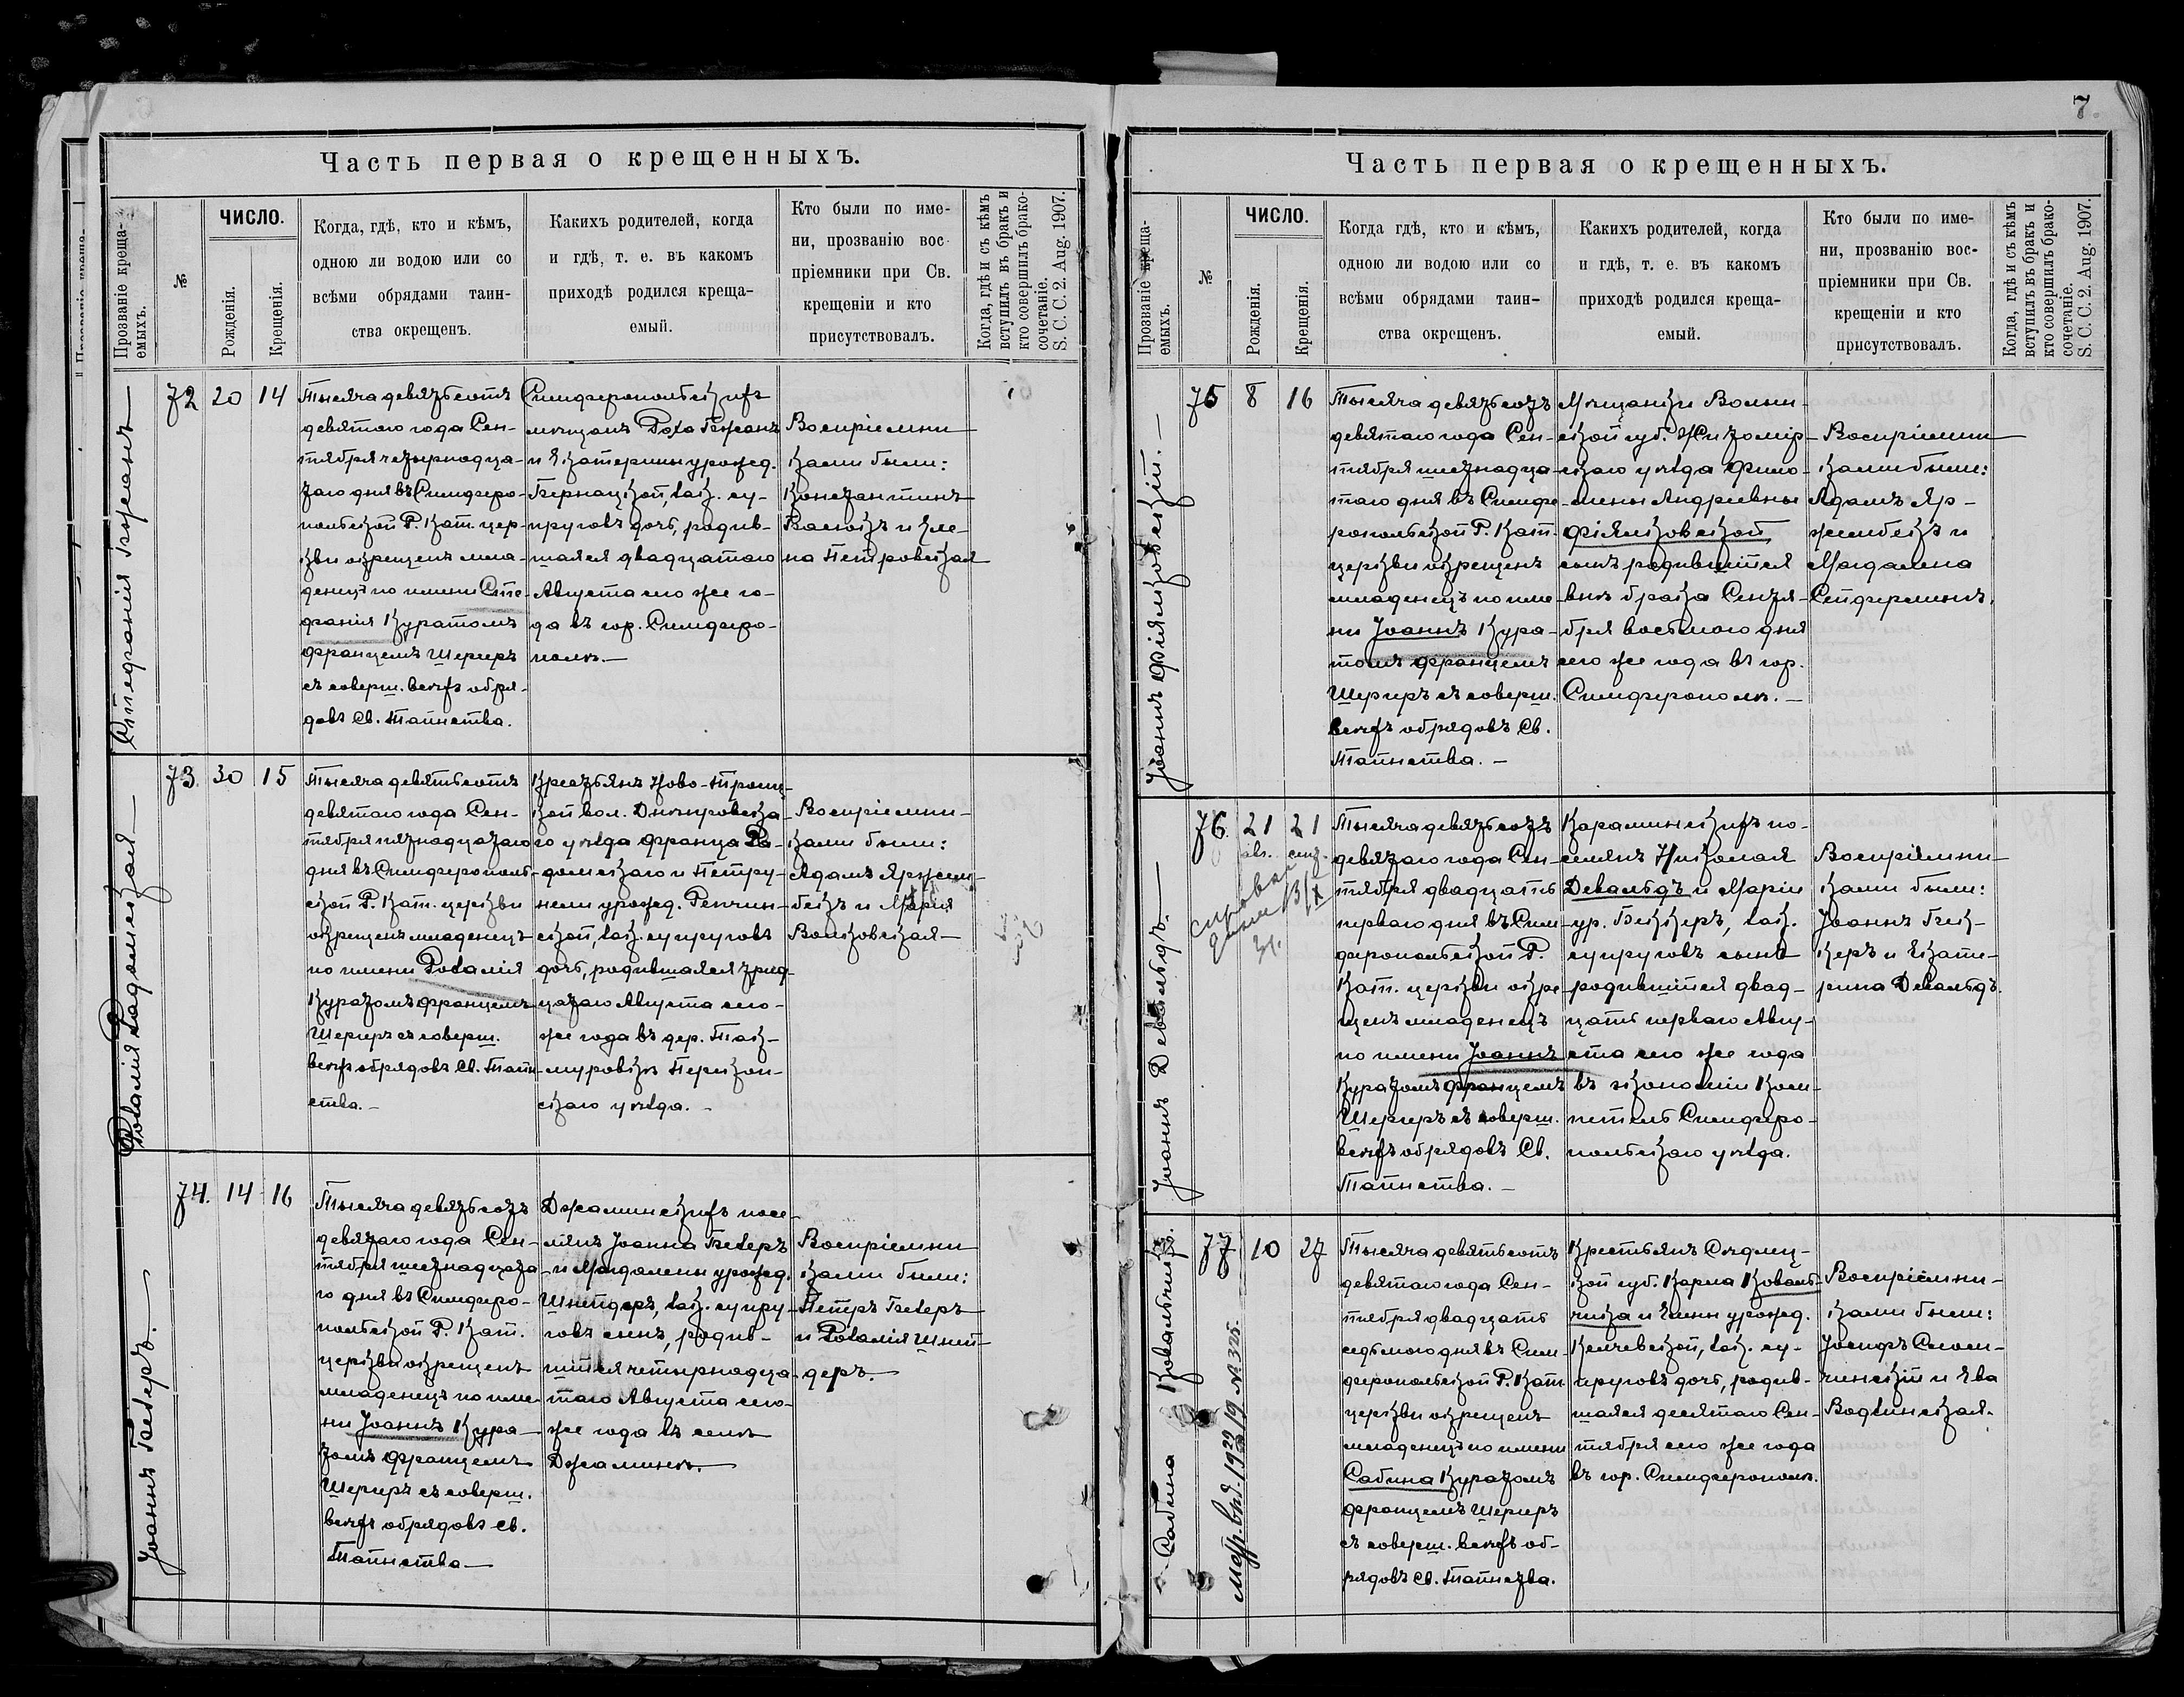 Часть первая о крещенныхъ.
Прозваніе креща-
емыхъ.
№
ЧИСЛО.
Рожденія.
Крещенія.
Когда, гдѣ, кто и кѣмъ,
одною ли водою или со
всѣми обрядами таин-
ства окрещенъ.
Какихъ родителей, когда
и гдѣ, т. е. въ какомъ
приходѣ родился креща-
емый.
Кто были по име-
ни, прозванію вос-
пріемники при Св.
крещеніи и кто
присутствовалъ.
Когда, гдѣ и съ кѣмъ
вступилъ въ бракъ и
кто совершилъ брако-
сочетаніе.
S. C. C. 2. Aug. 1907.
Стефанія
72 20 14
Тысяча девятьсотъ
девятаго года Сен-
тября четырнадца-
таго дня въ Симферо-
польской Р. Кат. цер-
кви окрещенъ мла-
денецъ по имени Сте-
фанія Куратомъ
Францемъ Шереръ
съ соверш. всѣхъ обря-
довъ Св. Таинства.
Симферопольскихъ
мѣщанъ Роха
и Екатерины урожд.
Бернацкой, зак. су-
пруговъ дочь, родив-
шаяся двадцатаго
Августа сего же го-
да въ гор. Симферо-
полѣ.—
Воспріемни-
ками были:
Константинъ
и Еле-
на Петровская
Розалія Радомская —
73. 30 15
Тысяча девятьсотъ
девятаго года Сен-
тября пятнадцатаго
дня въ Симферополь-
ской Р. Кат. церкви
окрещенъ младенецъ
по имени Розалія
Куратомъ Францемъ
Шереръ съ соверш.
всѣхъ обрядовъ Св. Таин-
ства.—
Крестьянъ Ново-Троиц-
кой вол. Днѣпровска-
го уѣзда Франца Ра-
домскаго и Петру-
нели урожд. Ренчин-
ской, зак. супруговъ
дочь, родившаяся трид-
цатаго Августа сего
же года въ дер.
Перекоп-
скаго уѣзда.—
Воспріемни-
ками были:
Адамъ Яржем-
бекъ и Марія
Волковская —
Іоаннъ Гзеперъ.
74. 14 16
Тысяча девятьсотъ
девятаго года Сен-
тября шестнадцата-
го дня въ Симферо-
польской Р. Кат.
церкви окрещенъ
младенецъ по име-
ни Іоаннъ Кура-
томъ Францемъ
Шереръ съ соверш.
всѣхъ обрядовъ Св.
Таинства —
Джаминскихъ посе-
лянъ Іоанна
и Магдалены урожд.
Шнейдеръ, зак. супру-
говъ сынъ, родив-
шійся четырнадца-
таго Августа сего-
же года въ селѣ
Джаминѣ. —
Воспріемни-
ками были:
Петръ
и Розалія Шней-
деръ. —
7.
Часть первая о крещенныхъ.
Прозваніе креща-
емыхъ.
№
ЧИСЛО.
Рожденія.
Крещенія.
Когда гдѣ, кто и кѣмъ,
одною ли водою или со
всѣми обрядами таин-
ства окрещенъ.
Какихъ родителей, когда
и гдѣ, т. е. въ какомъ
приходѣ родился креща-
емый.
Кто были по име-
ни, прозванію вос-
пріемники при Св.
крещеніи и кто
присутствовалъ.
Когда, гдѣ и съ кѣмъ
вступилъ въ бракъ и
кто совершилъ брако-
сочетаніе.
S. C. C. 2. Aug. 1907.
Іоаннъ Фіялковскій. —
75 8 16
Тысяча девятьсотъ
девятаго года Сен-
тября шестнадца-
таго дня въ Симфе-
ропольской Р. Кат.
церкви окрещенъ
младенецъ по име-
ни Іоаннъ Кура-
томъ Францемъ
Шереръ съ соверш.
всѣхъ обрядовъ Св.
Таинства. —
Мѣщанки Волын-
ской губ. Житомір-
скаго уѣзда Фило-
мены Андреевны
Фіялковской
сынъ родившійся
внѣ брака Сентя-
бря восьмого дня
сего же года въ гор.
Симферополѣ. —
Воспріемни-
ками были:
Адамъ Яр-
жембекъ и
Магдалина
Сейферлингъ.
Іоаннъ Девальдъ. —
76. 21 21
авг. сент.
Тысяча девятьсотъ
девятаго года Сен-
тября двадцать
перваго дня въ Сим-
феропольской Р.
Кат. церкви окре-
щенъ младенецъ
по имени Іоаннъ
Куратомъ Францемъ
Шереръ съ соверш.
всѣхъ обрядовъ Св.
Таинства. —
Караминскихъ по-
селянъ Николая
Девальдъ и Маріи
ур. Беккеръ, зак.
супруговъ сынъ
родившійся двад-
цать перваго Авгу-
ста сего же года
въ экономіи Ком-
Симферо-
польскаго уѣзда.
Воспріемни-
ками были:
Іоаннъ Бек-
керъ и Екате-
рина Девальдъ.
Сабина Ковальчикъ.
77 10 27
Тысяча девятьсотъ
девятаго года Сен-
тября двадцать
седьмого дня въ Сим-
феропольской Р. Кат.
церкви окрещенъ
младенецъ по имени
Сабина Куратомъ
Францемъ Шереръ
съ соверш. всѣхъ об-
рядовъ Св. Таинства.
Крестьянъ Сѣдлец-
кой губ. Карла Коваль-
чика и Елены урожд.
зак. су-
пруговъ дочь, родив-
шаяся десятаго Сен-
тября сего же года
въ гор. Симферополѣ.
Воспріемни-
ками были:
Іосифъ
и Ева